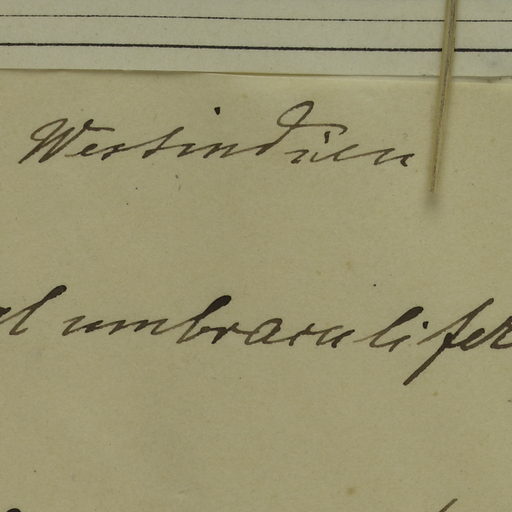 Westindien
umbraculifer